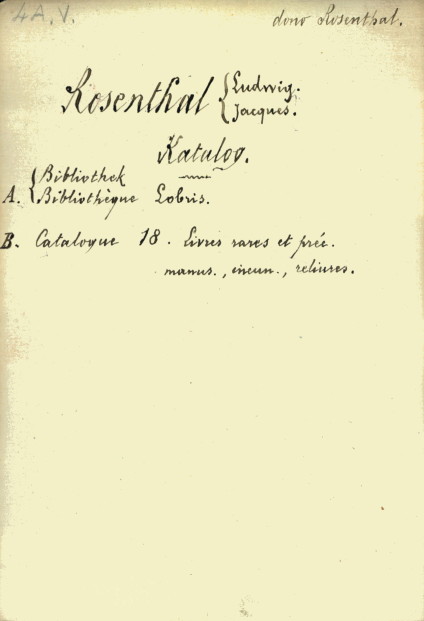 4A.V.
dono Rosenthal.
Rosenthal { Ludwig.
Jacques.
Katalog.
A. { Bibliothek
Bibliothèque Lobris.
B. Catalogue 18. Livres rares et préc.
manus., incun., reliures.